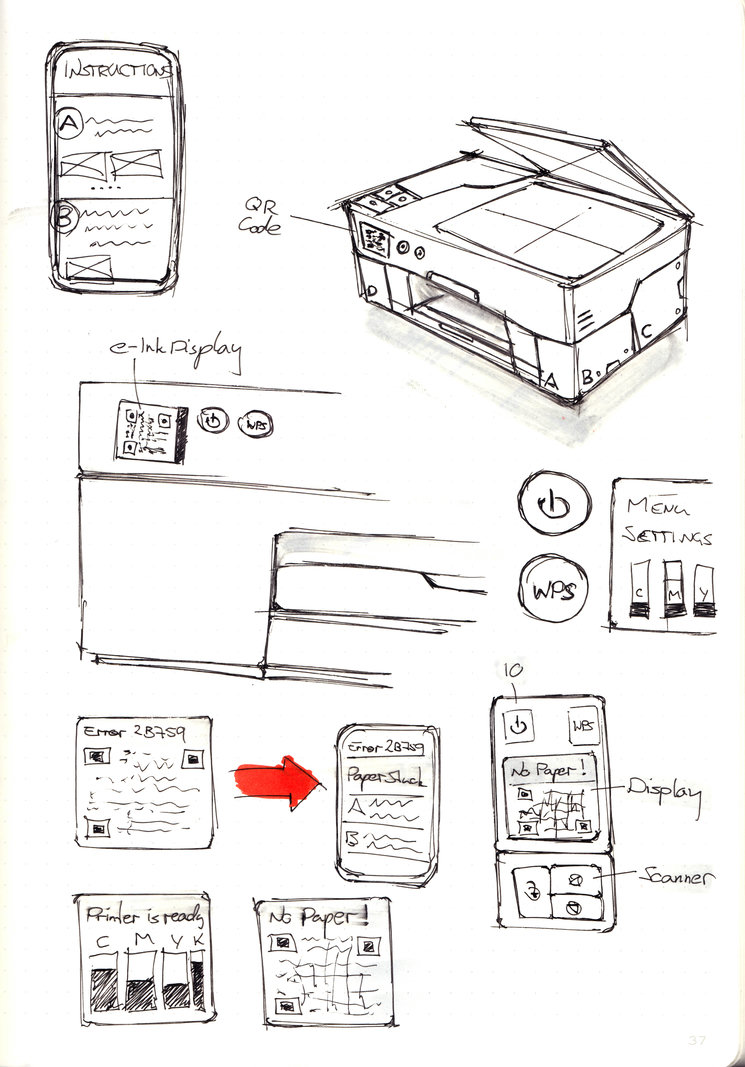 INSTRUCTIONS
A
B
QR
Code
D
A
B
C
e-Ink Display
WPS
WPS
MENU
SETTINGS
C M Y
Error 2B759
Error 2B759
Paper Stuck
A
B
10
WPS
No Paper!
Display
Scanner
Printer is ready
C M Y K
No Paper!
37